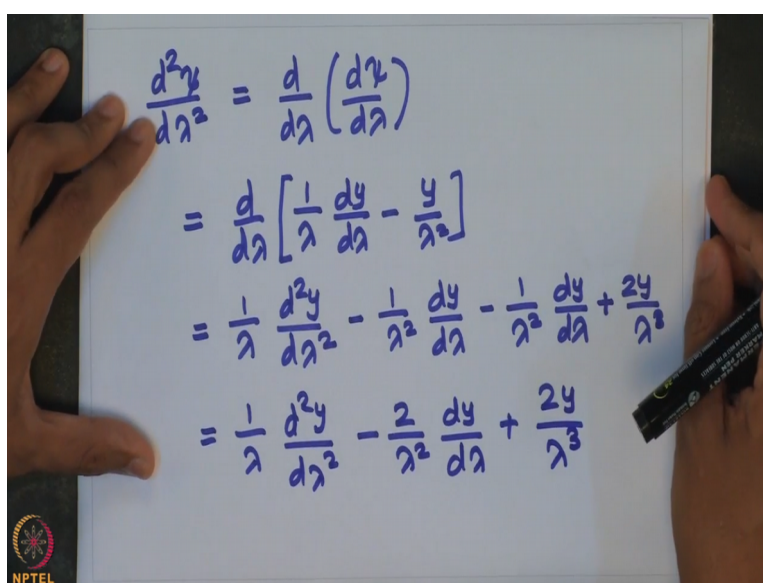 d²ψ/dλ² = d/dλ (dψ/dλ)
= d/dλ [1/λ dy/dλ - y/λ²]
= 1/λ d²y/dλ² - 1/λ² dy/dλ - 1/λ² dy/dλ + 2y/λ³
= 1/λ d²y/dλ² - 2/λ² dy/dλ + 2y/λ³
NPTEL